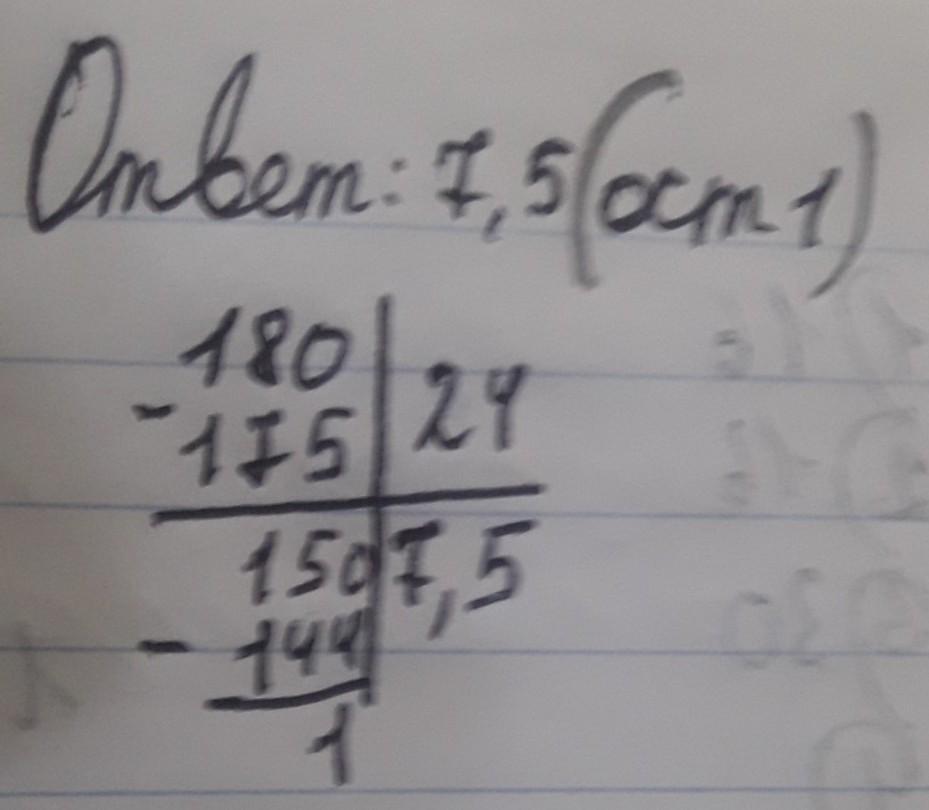 Ответ: 7,5 (ост 1)
180 24
- 175
150 7,5
- 144
1